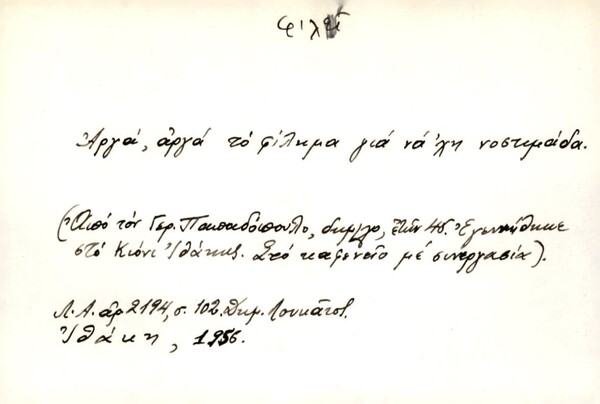 φιλεῖ
Ἀργά, ἀργά τό φίλημα γιά νά 'χη νοστιμάδα.
(Ἀπό τόν Γερ. Παπαδόπουλο, δημ/λο, ἐτῶν 45. Ἐγεννήθηκε
στό Κιόνι Ἰθάκης. Στό καφενεῖο μέ συνεργασία).
Λ.Α. ἀρ 2194, σ. 102. Δημ. Λουκᾶτος.
Ἰθάκη, 1956.